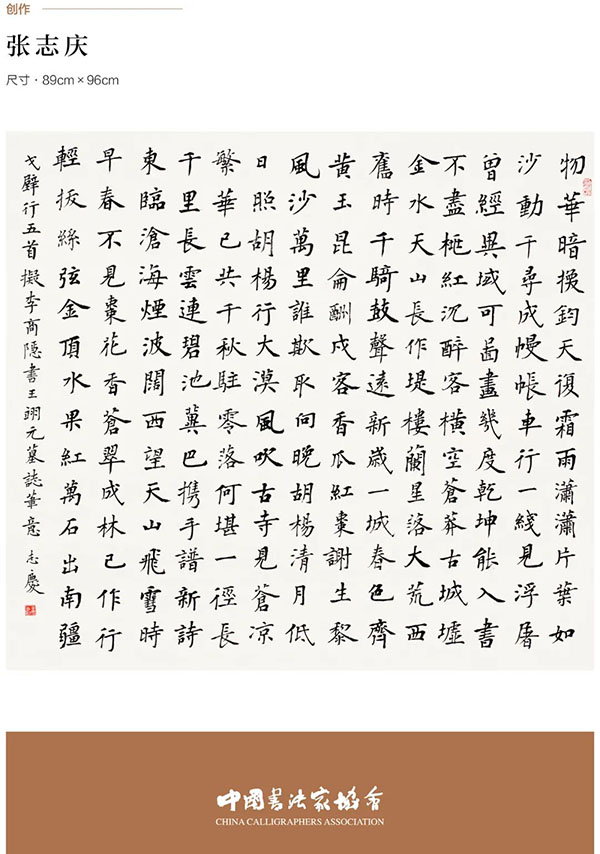 创作
张志庆
尺寸·89cm×96cm
物華暗換鈞天復霜雨瀟瀟片葉如
沙動千尋成幔帳車行一綫見浮屠
曾經異域可啚畫幾度乾坤能入書
不盡桃紅沉醉客橫空蒼莽古城墟
金水天山長作堤樓蘭星落大荒西
舊時千騎鼓聲遠新歲一城春色齊
黃玉昆侖酬戍客香瓜紅棗謝生黎
風沙萬里誰欺取向晚胡楊清月低
日照胡楊行大漠風吹古寺見蒼凉
繁華已共千秋駐零落何堪一徑長
千里長雲連碧池冀巴携手譜新詩
東臨滄海煙波闊西望天山飛雪時
早春不見棗花香蒼翠成林已作行
輕撥絲弦金頂水果紅萬石出南疆
戈壁行五首擬李商隱書王翊元墓誌筆意 志慶
中國書法家協會
CHINA CALLIGRAPHERS ASSOCIATION